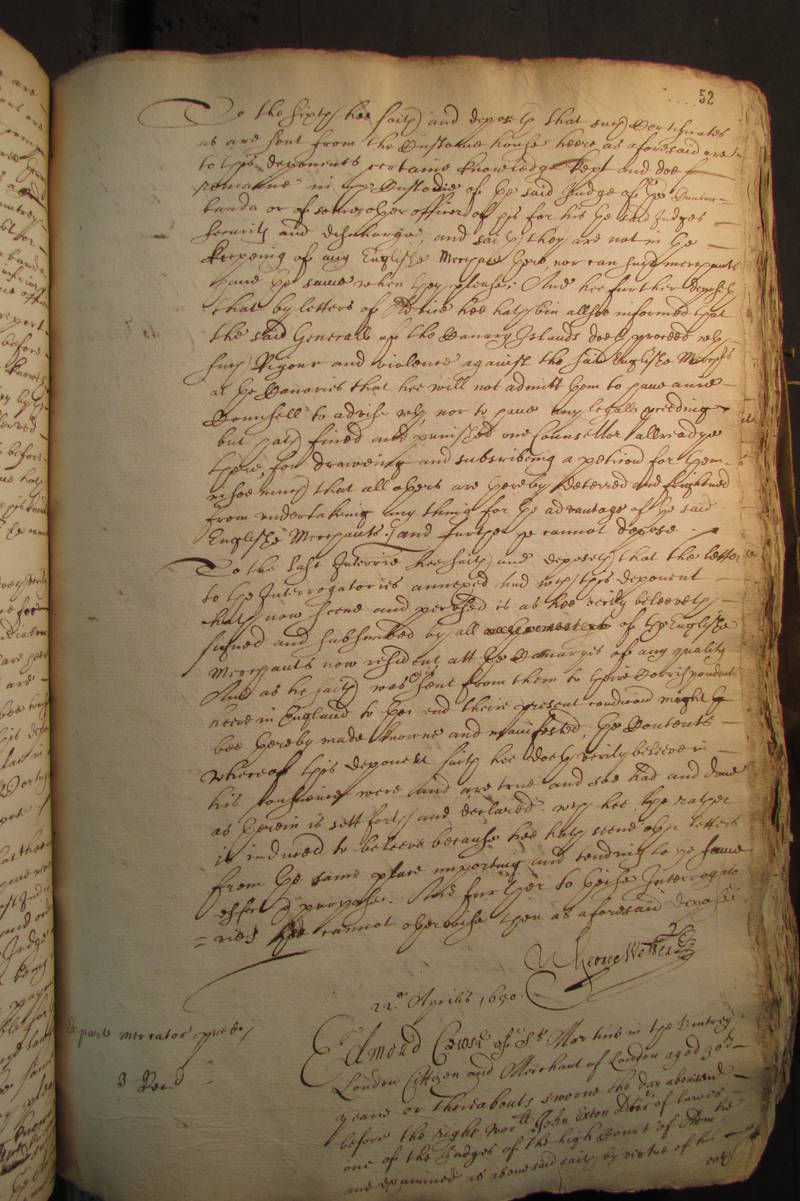 52
To the sixth hee saith and deposeth that such Certificates
as are sent from the Custome house heere as aforesaid are
to this deponents certaine knowledge kept and doe
remaine in the Custodie of the said Judge of the Contra=
banda or of some other officer of his for his the said Judges
security and discharge, and saith they are not in the
keeping of any English Merchant there nor can such merchants
have the same when they please: And hee further deposeth
that by letters of Advice hee hath bin allsoe informed that
the said Generall of the Canary Islands doeth proceed with
such Rigour and violence against the said English Merchts
at the Canaries that hee will not admitt them to have anie
Counsell to advise with nor to have any legall proceeding
but hath fined and punished one Counsellor allreadye
there, for draweing and subscribing a petition for them
that all others are thereby deterred and frightned
from undertaking any thing for the advantage of the said
English Merchants. And further he cannot depose.
To the last Interrie hee saith and deposeth that the letter
to the Interrogatories annexed and wch this deponent
hath now seene and perused is as hee verily beleeveth
signed and subscribed by all of the English
Merchants now resident att the Canarys of any quality
And as he saith was sent from them to their Correspondents
heere in England to the end theire present condicon might
bee thereby made knowne and manifested, the Contents
whereof this deponent saith hee doeth verily beleeve in
his conscience were and are true and soe had and done
as therein is sett forth and declared. wch hee the rather
is induced to beleeve because hee hath seene other letters
from the same place importing and tending to the same
effect & purpose. And further to theise Interrogato
=ries hee cannot otherwise then as aforesaid depose.
George Webber
22o Aprilis 1650.
Ex parte mercator pred
3
Edmond Cowse of St Martins in the Vintrey
London Citizen and Merchant of London aged 30
yeares or thereabouts sworne the day abovesaid
before the right worll John Exton Dcor of lawes
one of the Judges of the high Court of Admtie
and examined as abovesaid saith by virtue of his
oath